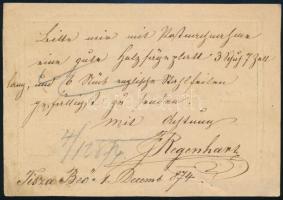 Bitte mir mit Postnachnahme
eine gute Holzsägeplatt 3 Schuh 7 Zoll
lang und 6 Stück englische Stahlfeilen
gefälligst zu senden
Mit Achtung
J Regenhart
Tisza Beö 1. Decemb 874.